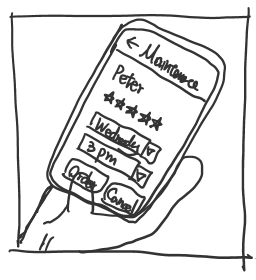 ← Maintenance
Peter
★★★★★
Wednesday
3 pm
Order Cancel